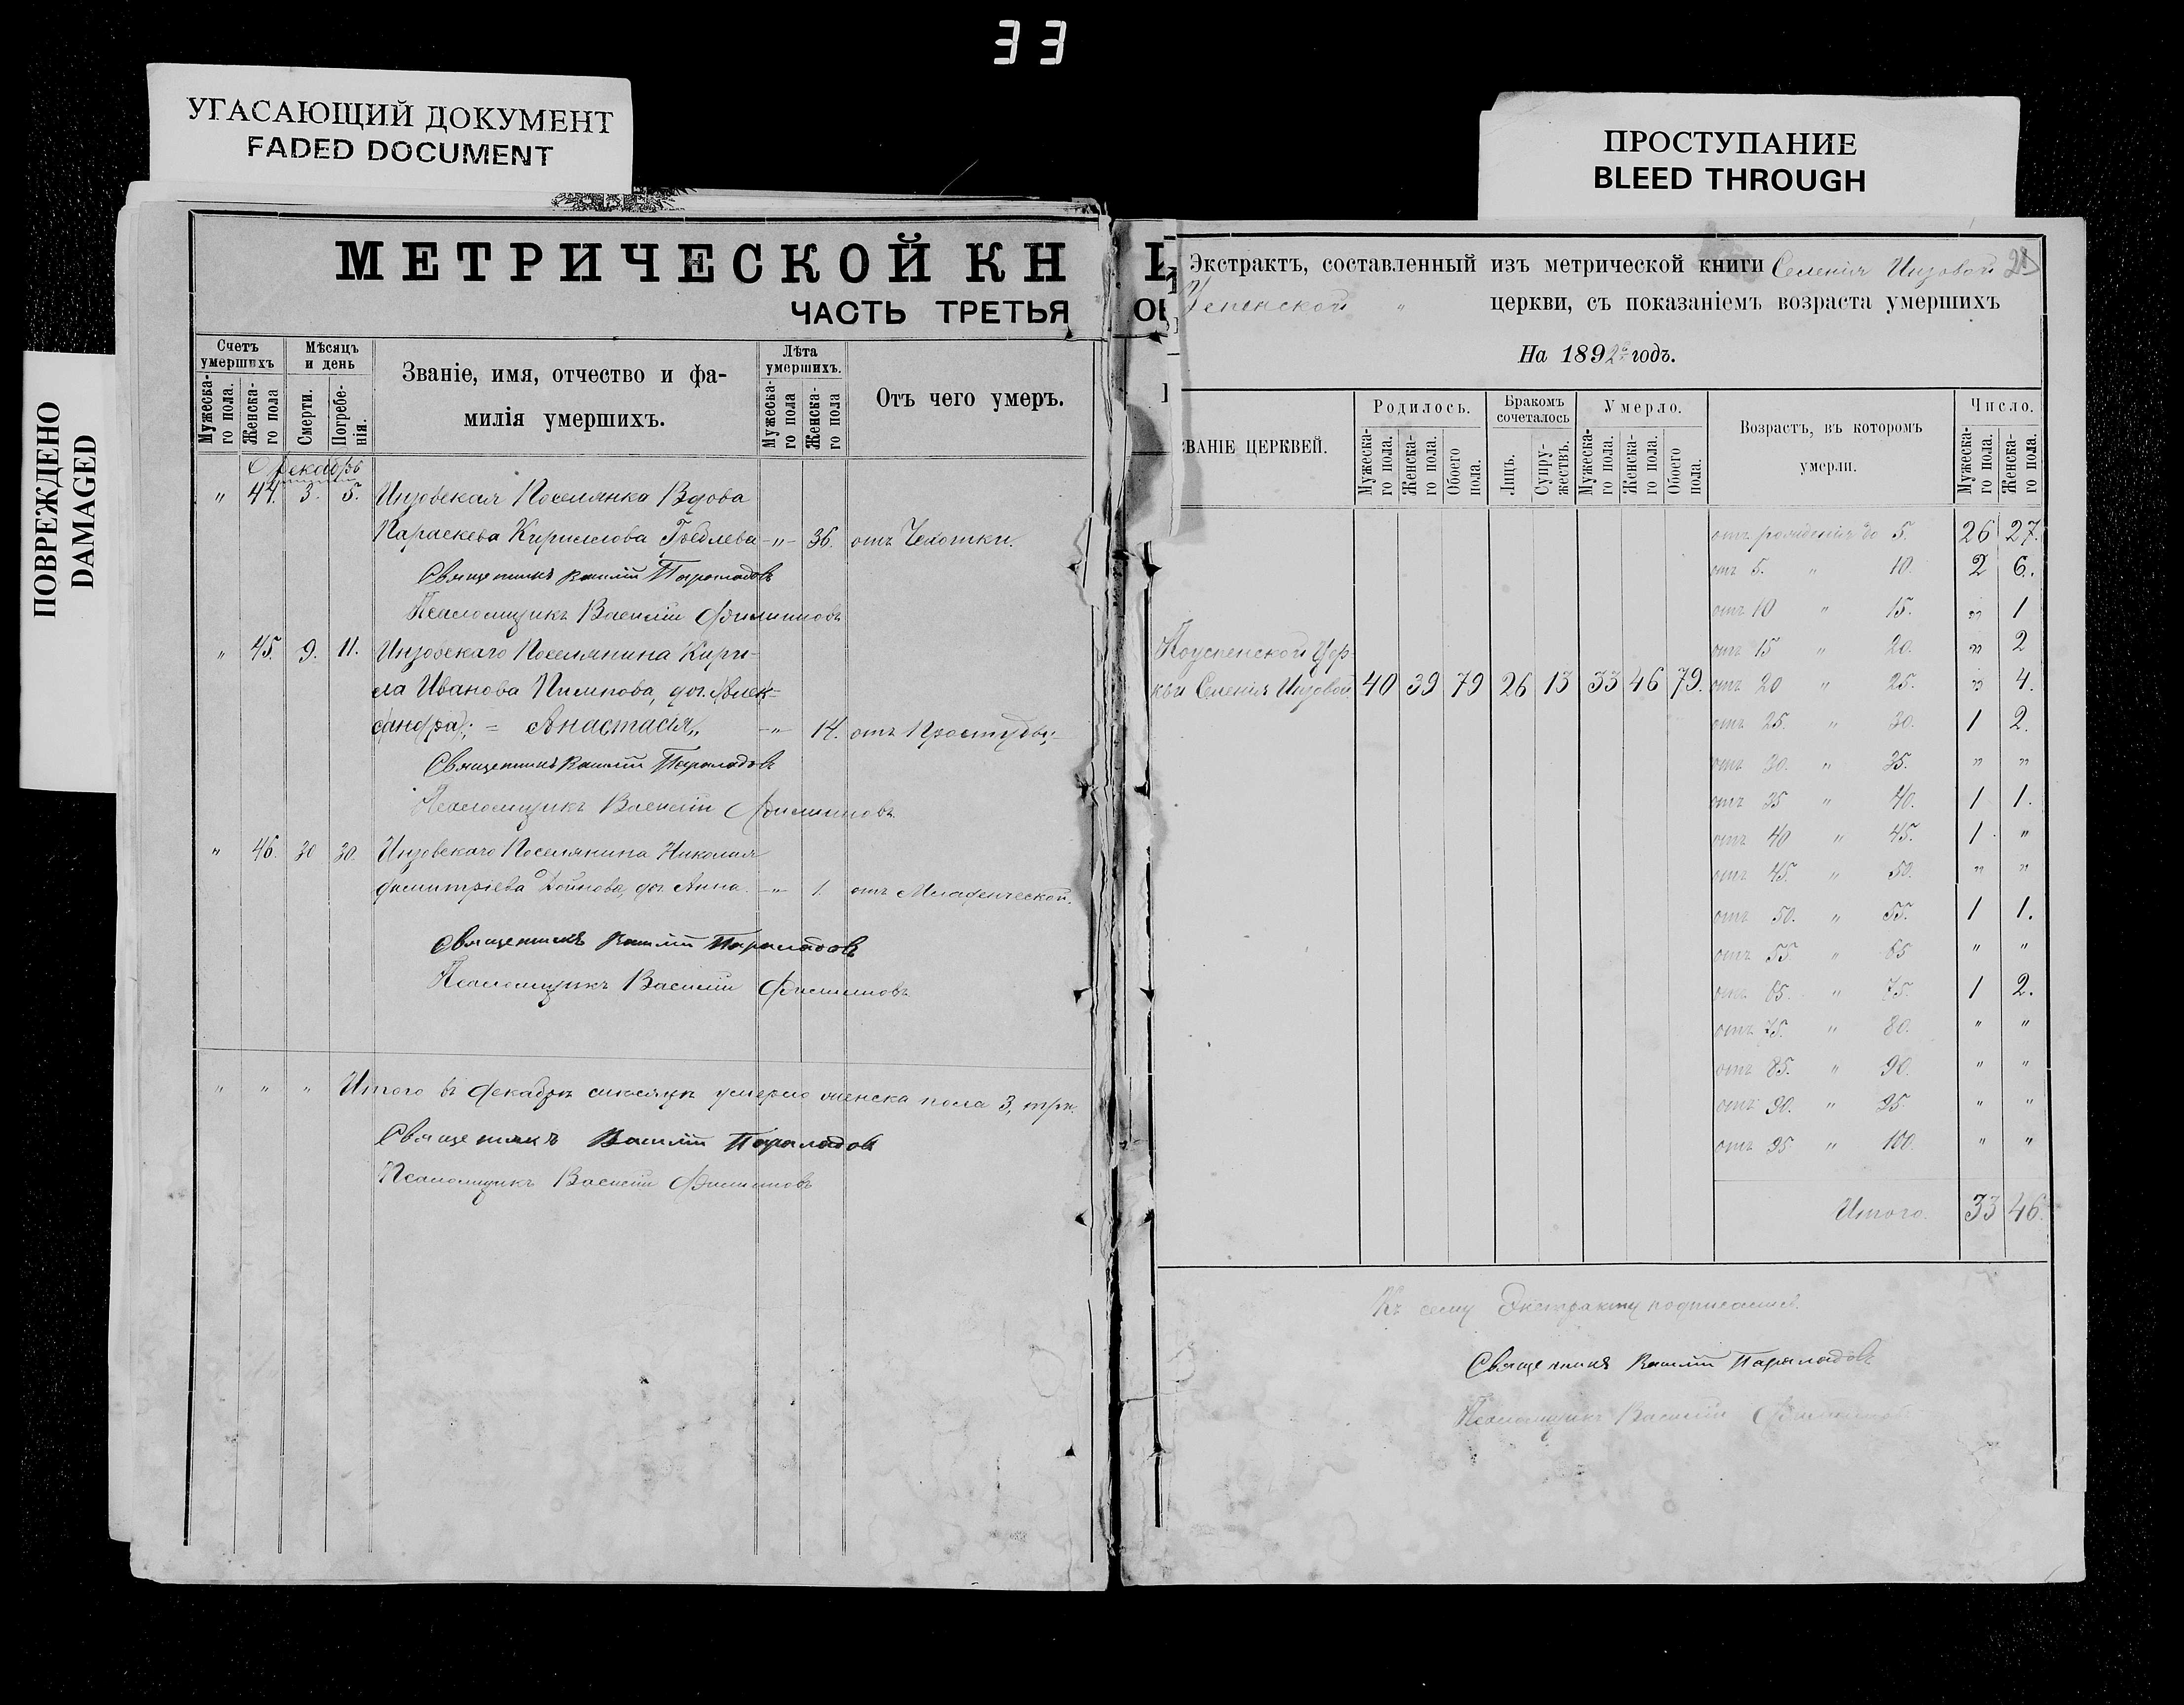 33
УГАСАЮЩИЙ ДОКУМЕНТ
FADED DOCUMENT
ПРОСТУПАНИЕ
BLEED THROUGH
ПОВРЕЖДЕНО
DAMAGED
МЕТРИЧЕСКОЙ КН
ЧАСТЬ ТРЕТЬЯ
Счетъ умершихъ
Мужеска-го пола.
Женска-го пола
Мѣсяцъ и день
Смерти.
Погребе-нія.
Званіе, имя, отчество и фа-
милія умершихъ.
Лѣта умершихъ.
Мужеска-го пола
Женска-го пола
Отъ чего умеръ.
Декабрь
" 44. 3. 5. Инзовская Поселянка Вдова
Параскева Кириллова -"- 36. отъ Чахотки.
Священникъ Василій
Псаломщикъ Василій Филипповъ
" 45. 9. 11. Инзовскаго Поселянина Кири-
ла Иванова дог. Алек-
сандра; = Анастасія„ -"- 14. отъ Простуды;
Священникъ Василій
Псаломщикъ Василій Филипповъ
" 46. 30 30. Инзовскаго Поселянина Николая
Димитріева Дойнова, доч. Анна. -"- 1. отъ Младенческой.
Священникъ Василій
Псаломщикъ Василій Филипповъ
" " " Итого въ Декабрѣ мѣсяцѣ умерло женска пола 3, три.
Священникъ Василій
Псаломщикъ Василій Филипповъ
Экстрактъ, составленный изъ метрической книги Селенія Инзовой
Успенской " церкви, съ показаніемъ возраста умершихъ
На 1892й годъ.
ЗВАНІЕ ЦЕРКВЕЙ.
Родилось.
Мужеска-го пола.
Женска-го пола.
Обоего пола.
Бракомъ сочеталось
Лицъ.
Супру-жествъ.
Умерло.
Мужеска-го пола.
Женска-го пола.
Обоего пола.
Возрастъ, въ которомъ
умерли.
Число.
Мужеска-го пола.
Женска-го пола.
отъ рожденія до 5. 26 27.
отъ 5. " 10. 2 6.
отъ 10 " 15. " 1
отъ 15 " 20. " 2
Поуспенской Цер-
кви Селенія Инзовой 40 39 79 26 13 33 46 79. отъ 20 " 25. " 4.
отъ 25. " 30. 1 2.
отъ 30. " 35. " "
отъ 35 " 40. 1 1.
отъ 40 " 45. 1. "
отъ 45. " 50. " "
отъ 50. " 55. 1 1.
отъ 55 " 65 " "
отъ 65. " 75. 1 2.
отъ 75. " 80. " "
отъ 85. " 90. " "
отъ 90. " 95. " "
отъ 95 " 100. " "
Итого. 33 46.
Къ сему Экстракту подписались.
Священникъ Василій
Псаломщикъ Василій